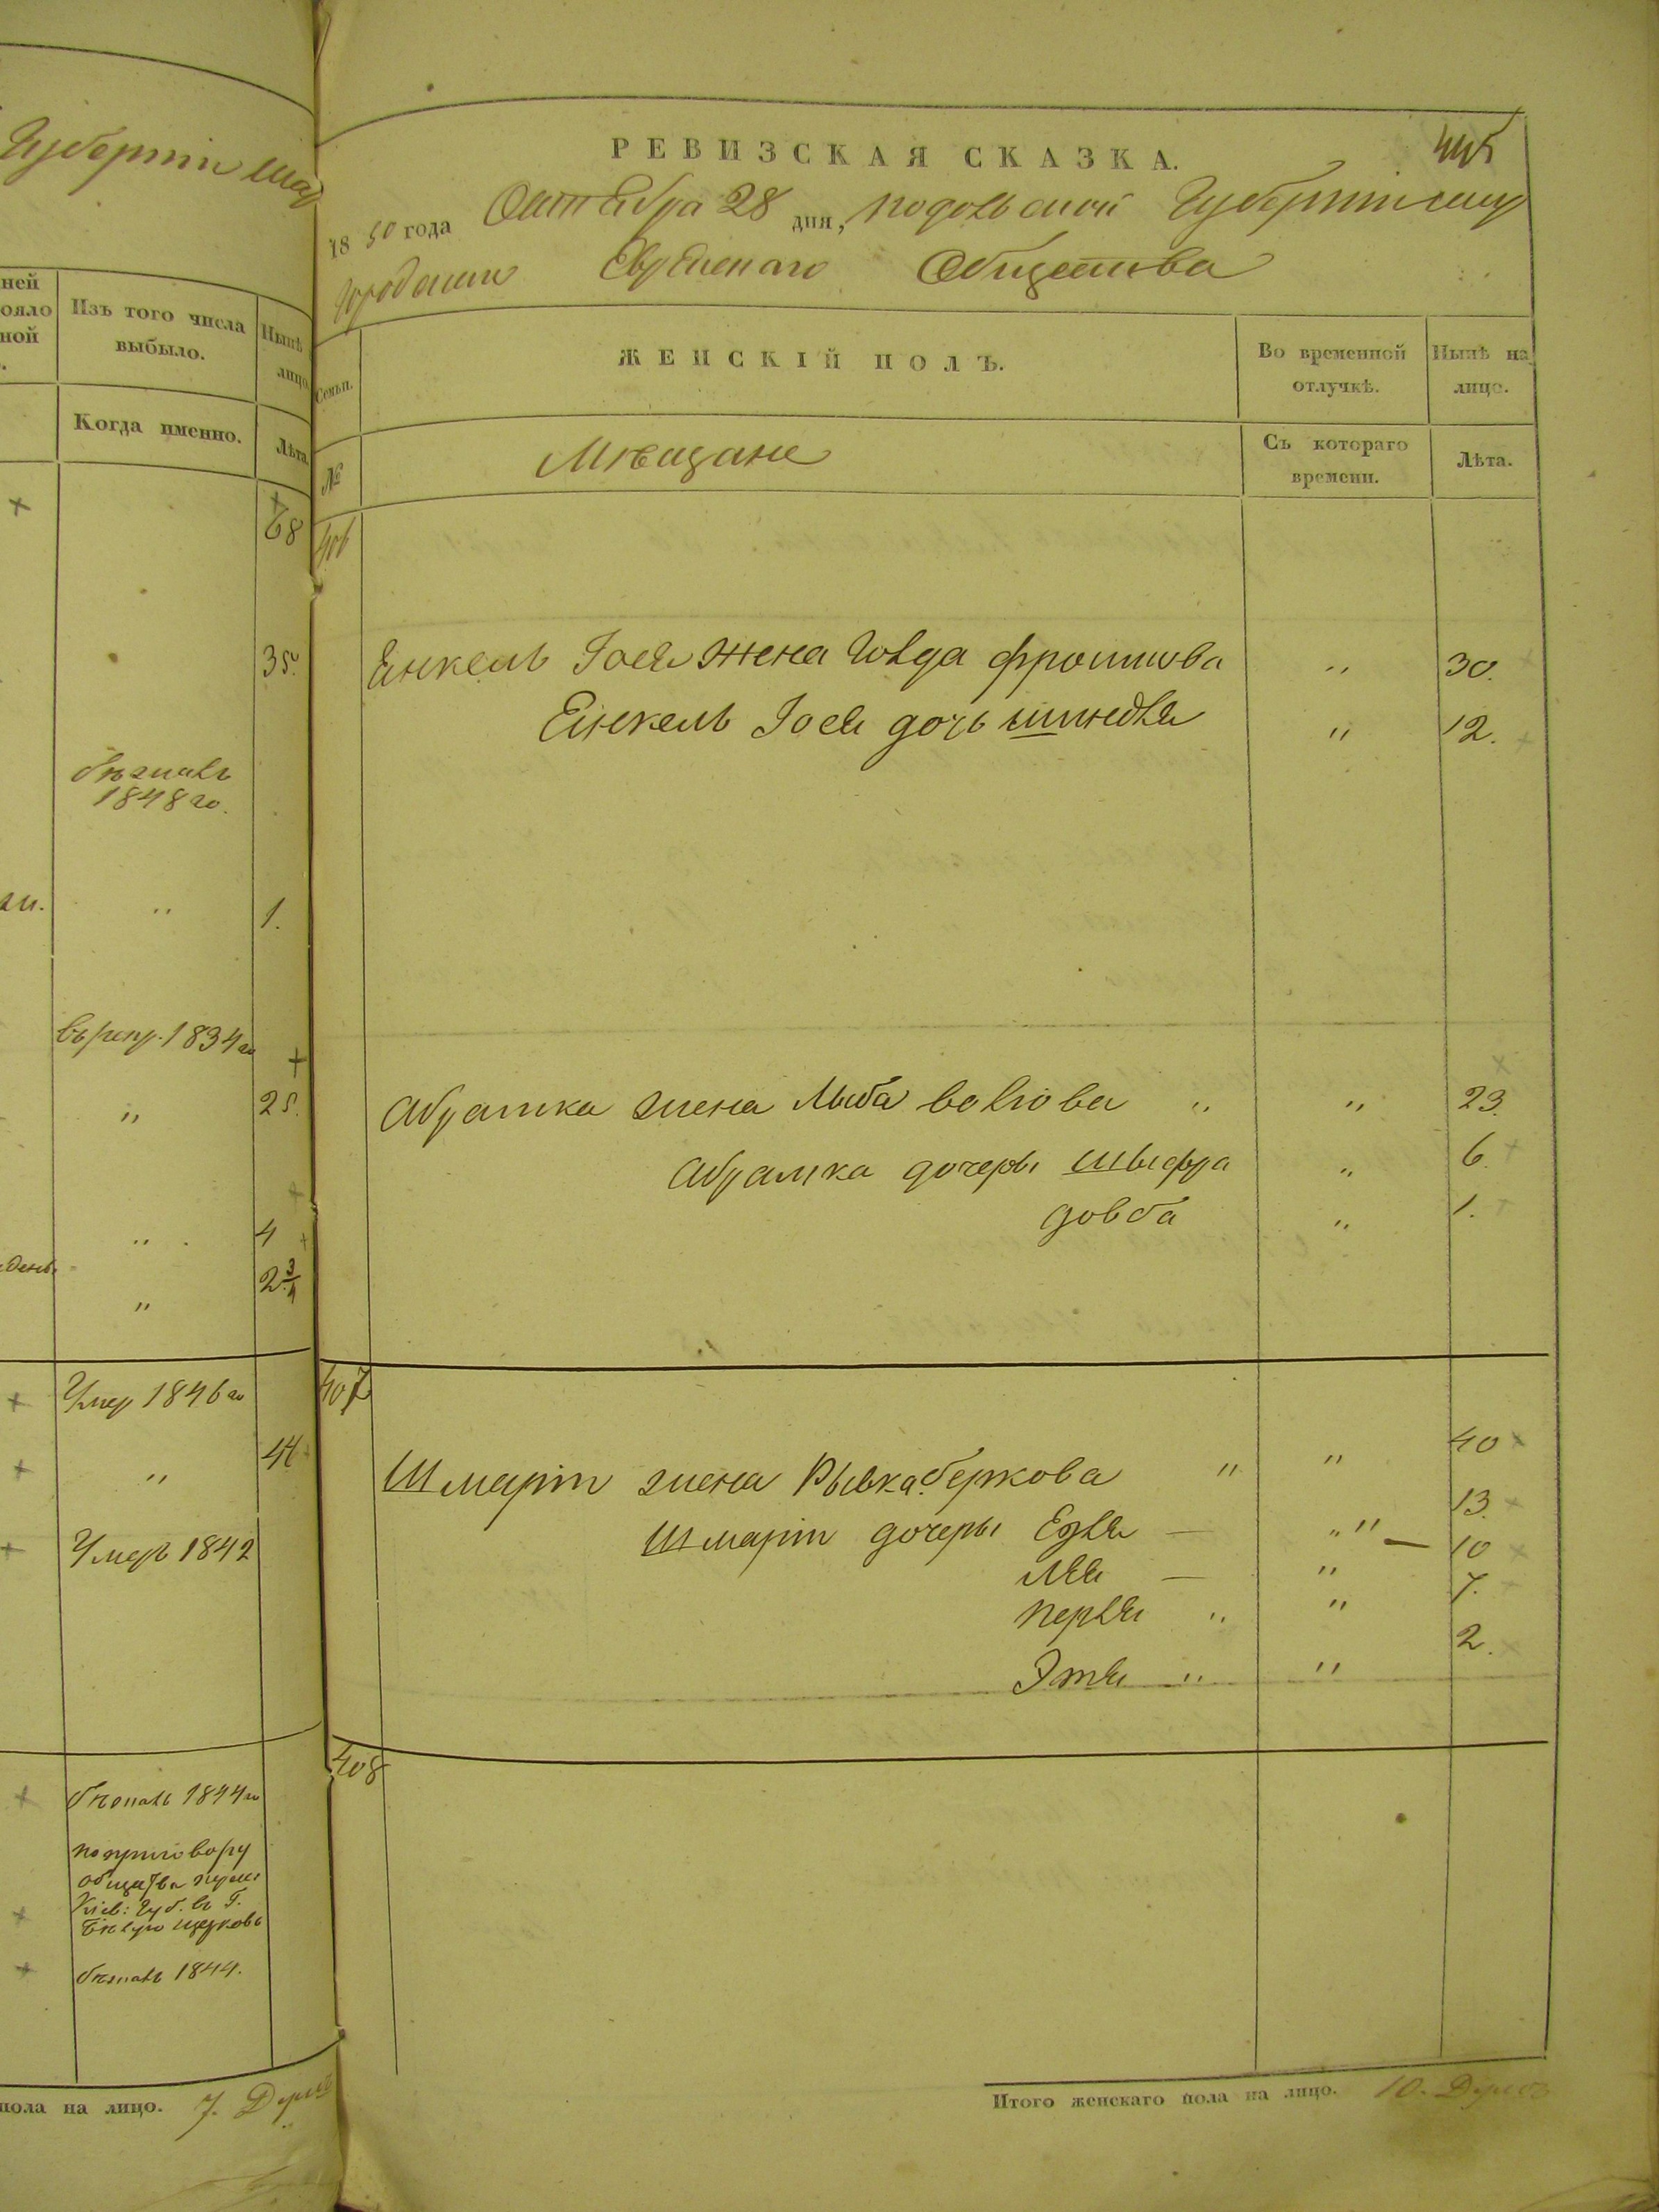 Губерніи Шар
ней
ояло
ной
Изъ того числа
выбыло.
Нынѣ
лицо.
Когда именно.
Лѣта.
68
35.
бѣжалъ
1848 го.
1.
въ рекр. 1834 го
25.
4
2 3/4
Умер 1846 го
44
Умеръ 1842
бѣжалъ 1844 го
по приговору
общества
Кіев: Губ. въ Г.
Бѣлую церковь
бѣжалъ 1844.
пола на лицо. 7. Душъ
РЕВИЗСКАЯ СКАЗКА.
1850 года Октября 28 дня, Подольской Губерніи Шар
городскаго Еврейскаго Общества
Семьи.
ЖЕНСКІЙ ПОЛЪ.
Во временной
отлучкѣ.
Нынѣ на
лице.
№
Мѣщане
Съ котораго
времени.
Лѣта.
406
Янкель Іося жена Говда Фроимова " 30.
Янкель Іося дочь Шиндля " 12.
Абрамка жена Лыба Вовкова " " 23.
Абрамка дочеры Шыфра " 6.
Довба " 1.
407
Шмарія жена Рывка Беркова " " 40
Шмарія дочеры Едля — " 13.
Лея — " 10
Перля " " 7.
Этя " " 2.
408
Итого женскаго пола на лицо. 10. Душъ